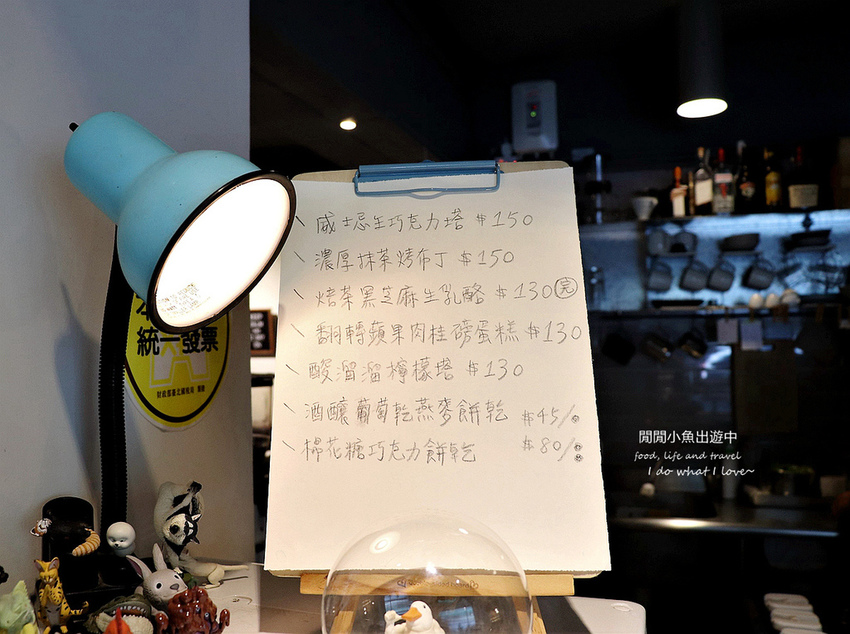 、威士忌生巧克力塔 $150
、濃厚抹茶烤布丁 $150
、焙茶黑芝麻生乳酪 $130 完
、翻轉蘋果肉桂磅蛋糕 $130
、酸溜溜檸檬塔 $130
、酒釀葡萄乾燕麥餅乾 $45/
、棉花糖巧克力餅乾 $80/
統一發票
閒閒小魚出遊中
food, life and travel
I do what I love~